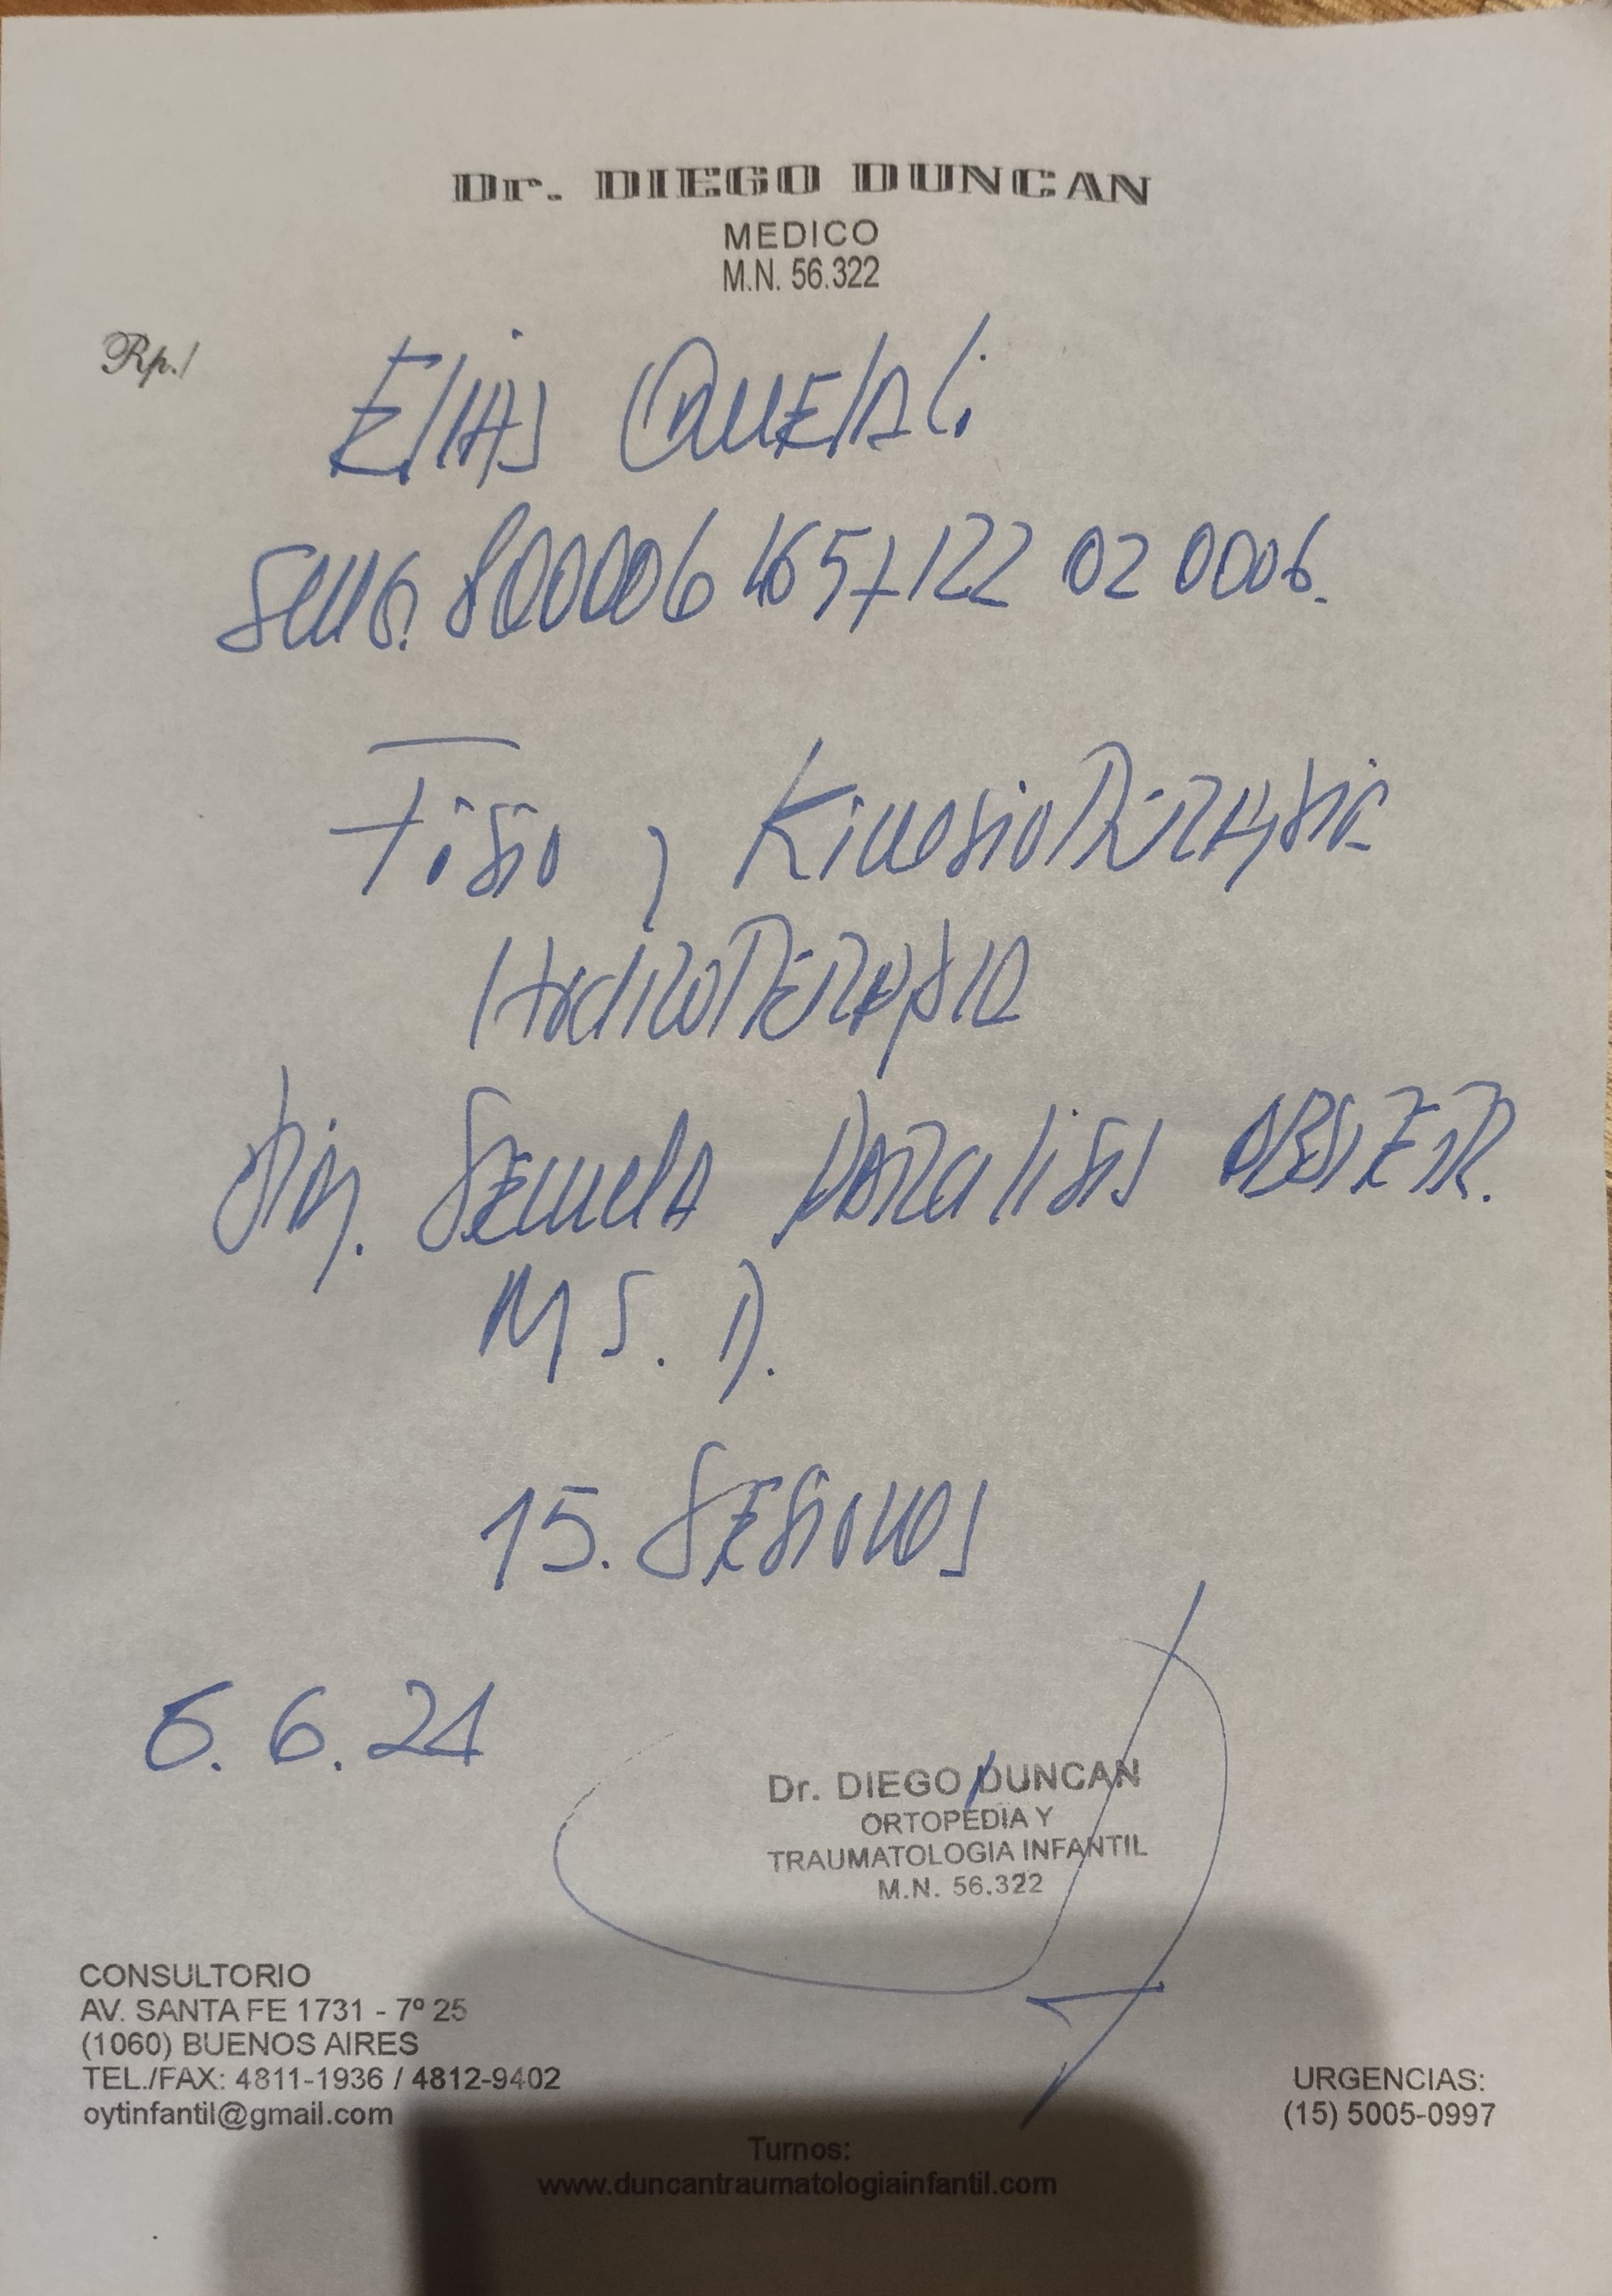 Dr. DIEGO DUNCAN
MEDICO
M.N. 56.322
Rp./
Elias
800006 1657122 02 0006.
Fisio y Kinesioterapia
Hidroterapia
Diag. Secuela Paralisis Obstetr.
M S. D.
15. Sesiones
6. 6. 24
Dr. DIEGO DUNCAN
ORTOPEDIA Y
TRAUMATOLOGIA INFANTIL
M.N. 56.322
CONSULTORIO
AV. SANTA FE 1731 - 7º 25
(1060) BUENOS AIRES
TEL./FAX: 4811-1936 / 4812-9402
oytinfantil@gmail.com
URGENCIAS:
(15) 5005-0997
Turnos:
www.duncantraumatologiainfantil.com